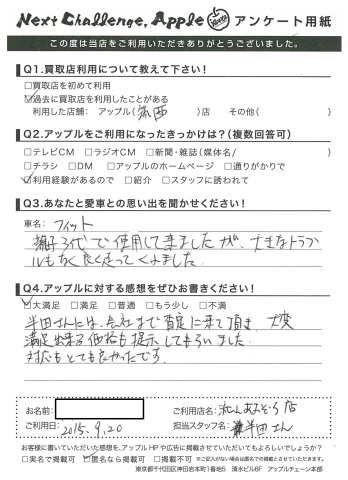 Next Challenge, Apple アンケート用紙
この度は当店をご利用いただきありがとうございました。
Q1.買取店利用について教えて下さい!
□買取店を初めて利用
☑過去に買取店を利用したことがある
利用した店舗: アップル( )店 その他( )
Q2.アップルをご利用になったきっかけは?(複数回答可)
□テレビCM □ラジオCM □新聞・雑誌(媒体名/ )
□チラシ □DM □アップルのホームページ □通りがかりで
☑利用経験があるので □紹介 □スタッフに誘われて
Q3.あなたと愛車との思い出を聞かせください!
車名: フィット
親子3代で使用して来ましたが、大きなトラブ
ルもなく良く走ってくれました。
Q4.アップルに対する感想をぜひお書きください!
☑大満足 □満足 □普通 □もう少し □不満
半田さんには、会社まで査定に来て頂き、大変
満足出来る価格を提示してもらいました。
対応もとても良かったです。
お名前:
ご利用日: 2015.9.20
ご利用店名: 浜松あみぞう店
担当スタッフ名: 半田さん
お客様に書いていただいた感想を、アップルHPや広告に掲載させていただいてもよろしいでしょうか?
□実名で掲載可 ☑匿名なら掲載可 □掲載不可 ※ご記入がない場合は匿名での掲載とさせていただきます。
東京都千代田区神田岩本町1番地5 清水ビル8F アップルチェーン本部